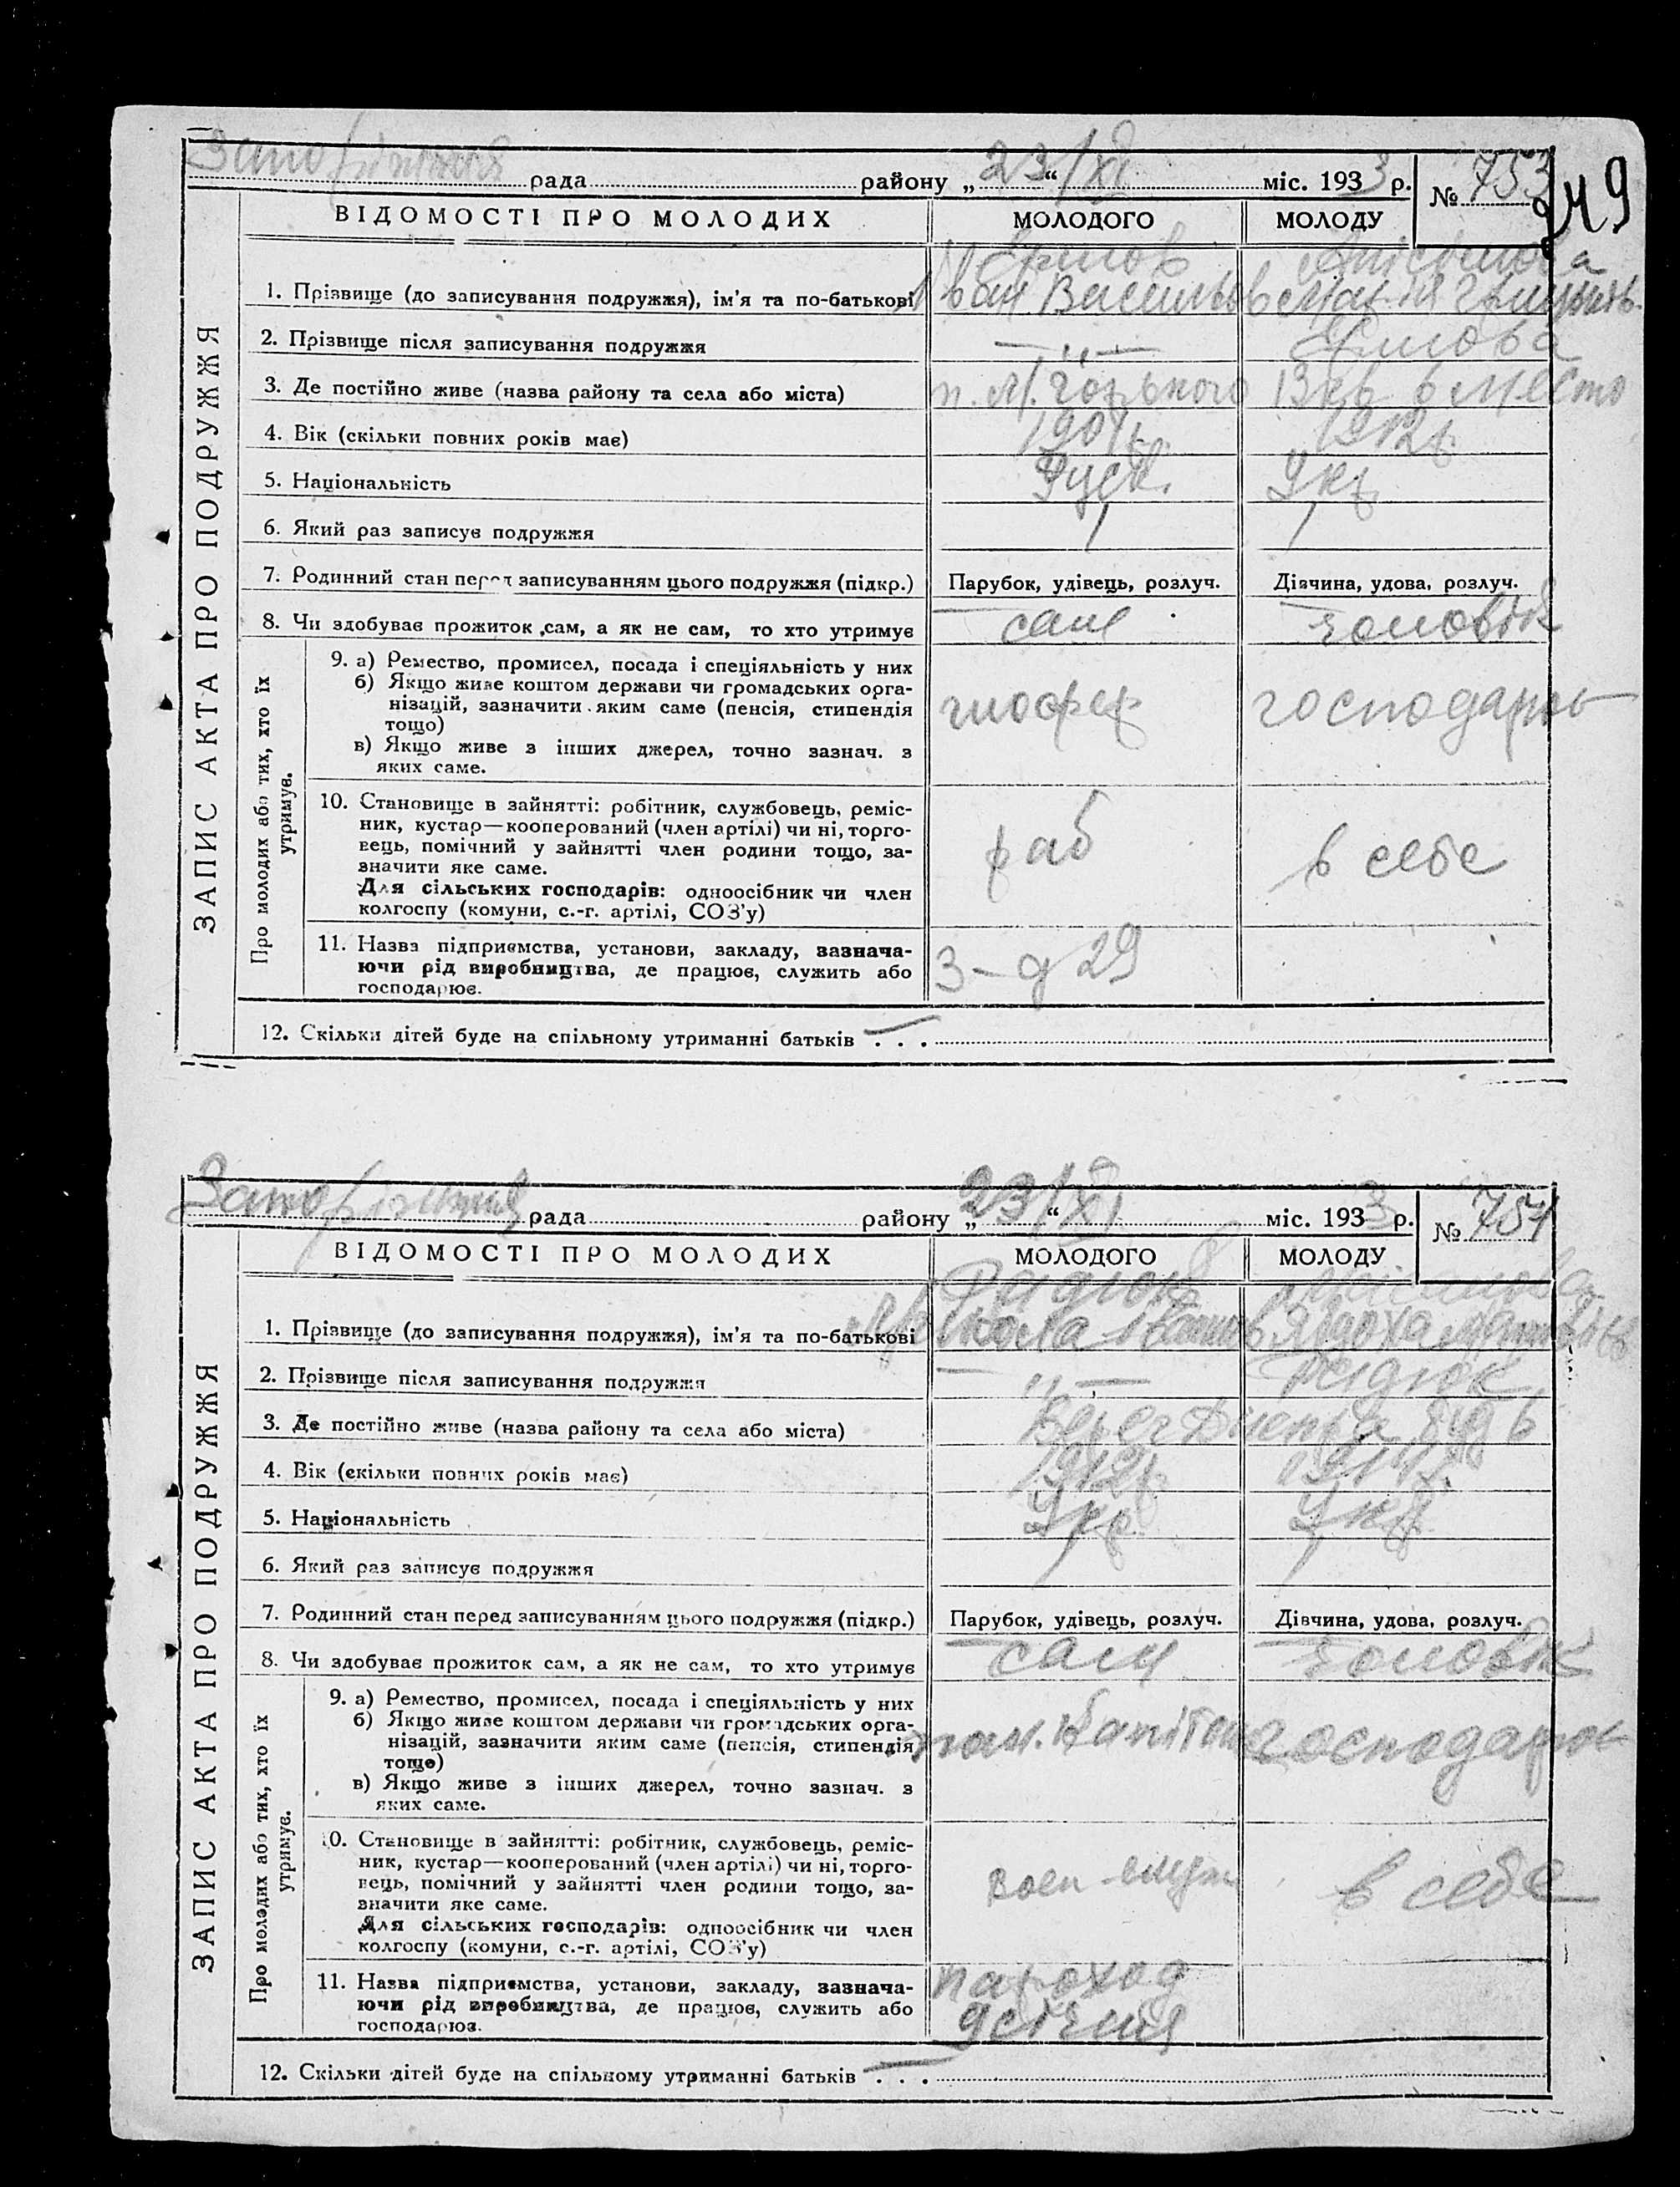 рада района „ 23/XI “ міс. 1933 р. № 753
249
ВІДОМОСТІ ПРО МОЛОДИХ МОЛОДОГО МОЛОДУ
ЗАПИС АКТА ПРО ПОДРУЖЖЯ
1. Прізвище (до записування подружжя), ім'я та по-батькові Іван Васильов
2. Прізвище після записування подружжя — „ —
3. Де постійно живе (назва району та села або міста) п. М. Горького
4. Вік (скільки повних років має) 1912р
5. Національність Руск. Укр
6. Який раз записує подружжя 1 1
7. Родинний стан перед записуванням цього подружжя (підкр.) Парубок, удівець, розлуч. Дівчина, удова, розлуч.
8. Чи здобуває прожиток сам, а як не сам, то хто утримує сам чоловік
Про молодих або тих, хто їх
утримує.
9. а) Ремество, промисел, посада і спеціяльність у них
б) Якщо живе коштом держави чи громадських орга-
нізацій, зазначити яким саме (пенсія, стипендія
тощо)
в) Якщо живе з інших джерел, точно зазнач. з
яких саме.
шофер господарює
10. Становище в зайнятті: робітник, службовець, реміс-
ник, кустар—кооперований (член артілі) чи ні, торго-
вець, помічний у зайнятті член родини тощо, за-
значити яке саме.
Для сільських господарів: одноосібник чи член
колгоспу (комуни, с.-г. артілі, СОЗ'у)
раб в себе
11. Назва підприємства, установи, закладу, зазнача-
ючи рід виробництва, де працює, служить або
господарює.
З-д 29
12. Скільки дітей буде на спільному утриманні батьків — . . .
рада району „ 23/XI “ міс. 1933 р. № 754
ВІДОМОСТІ ПРО МОЛОДИХ МОЛОДОГО МОЛОДУ
ЗАПИС АКТА ПРО ПОДРУЖЖЯ
1. Прізвище (до записування подружжя), ім'я та по-батькові
2. Прізвище після записування подружжя — „ — Редюк
3. Де постійно живе (назва району та села або міста) Берег Дніпра
4. Вік (скільки повних років має) 1912р 1911р
5. Національність Укр Укр
6. Який раз записує подружжя 1 1
7. Родинний стан перед записуванням цього подружжя (підкр.) Парубок, удівець, розлуч. Дівчина, удова, розлуч.
8. Чи здобуває прожиток сам, а як не сам, то хто утримує сам чоловік
Про молодих або тих, хто їх
утримує.
9. а) Ремество, промисел, посада і спеціяльність у них
б) Якщо живе коштом держави чи громадських орга-
нізацій, зазначити яким саме (пенсія, стипендія
тощо)
в) Якщо живе з інших джерел, точно зазнач. з
яких саме.
пом. капітана господарює
10. Становище в зайнятті: робітник, службовець, реміс-
ник, кустар—кооперований (член артілі) чи ні, торго-
вець, помічний у зайнятті член родини тощо, за-
значити яке саме.
Для сільських господарів: одноосібник чи член
колгоспу (комуни, с.-г. артілі, СОЗ'у)
в себе
11. Назва підприємства, установи, закладу, зазнача-
ючи рід виробництва, де працює, служить або
господарює.
пароход
9 січня
12. Скільки дітей буде на спільному утриманні батьків — . . .